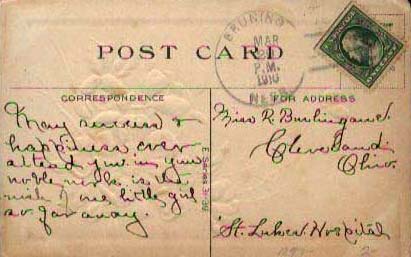 BRUNING
MAR
P.M.
1910
NEBR.
POST CARD
CORRESPONDENCE
FOR ADDRESS
May success &
happiness ever
attend you in your
noble work is the
wish of one little girl
so far away.
E Series
Miss R. Burlingame.
Cleveland
Ohio.
St. Lukes Hospital